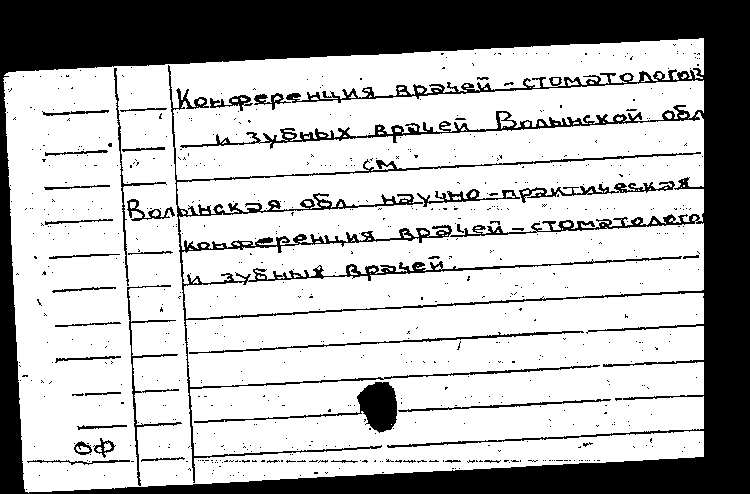 Конференция врачей - стоматологов
и зубных врачей Волынской обл
см
Волынская обл. научно-практическая
конференция врачей-стоматолого
и зубных врачей.
ОФ